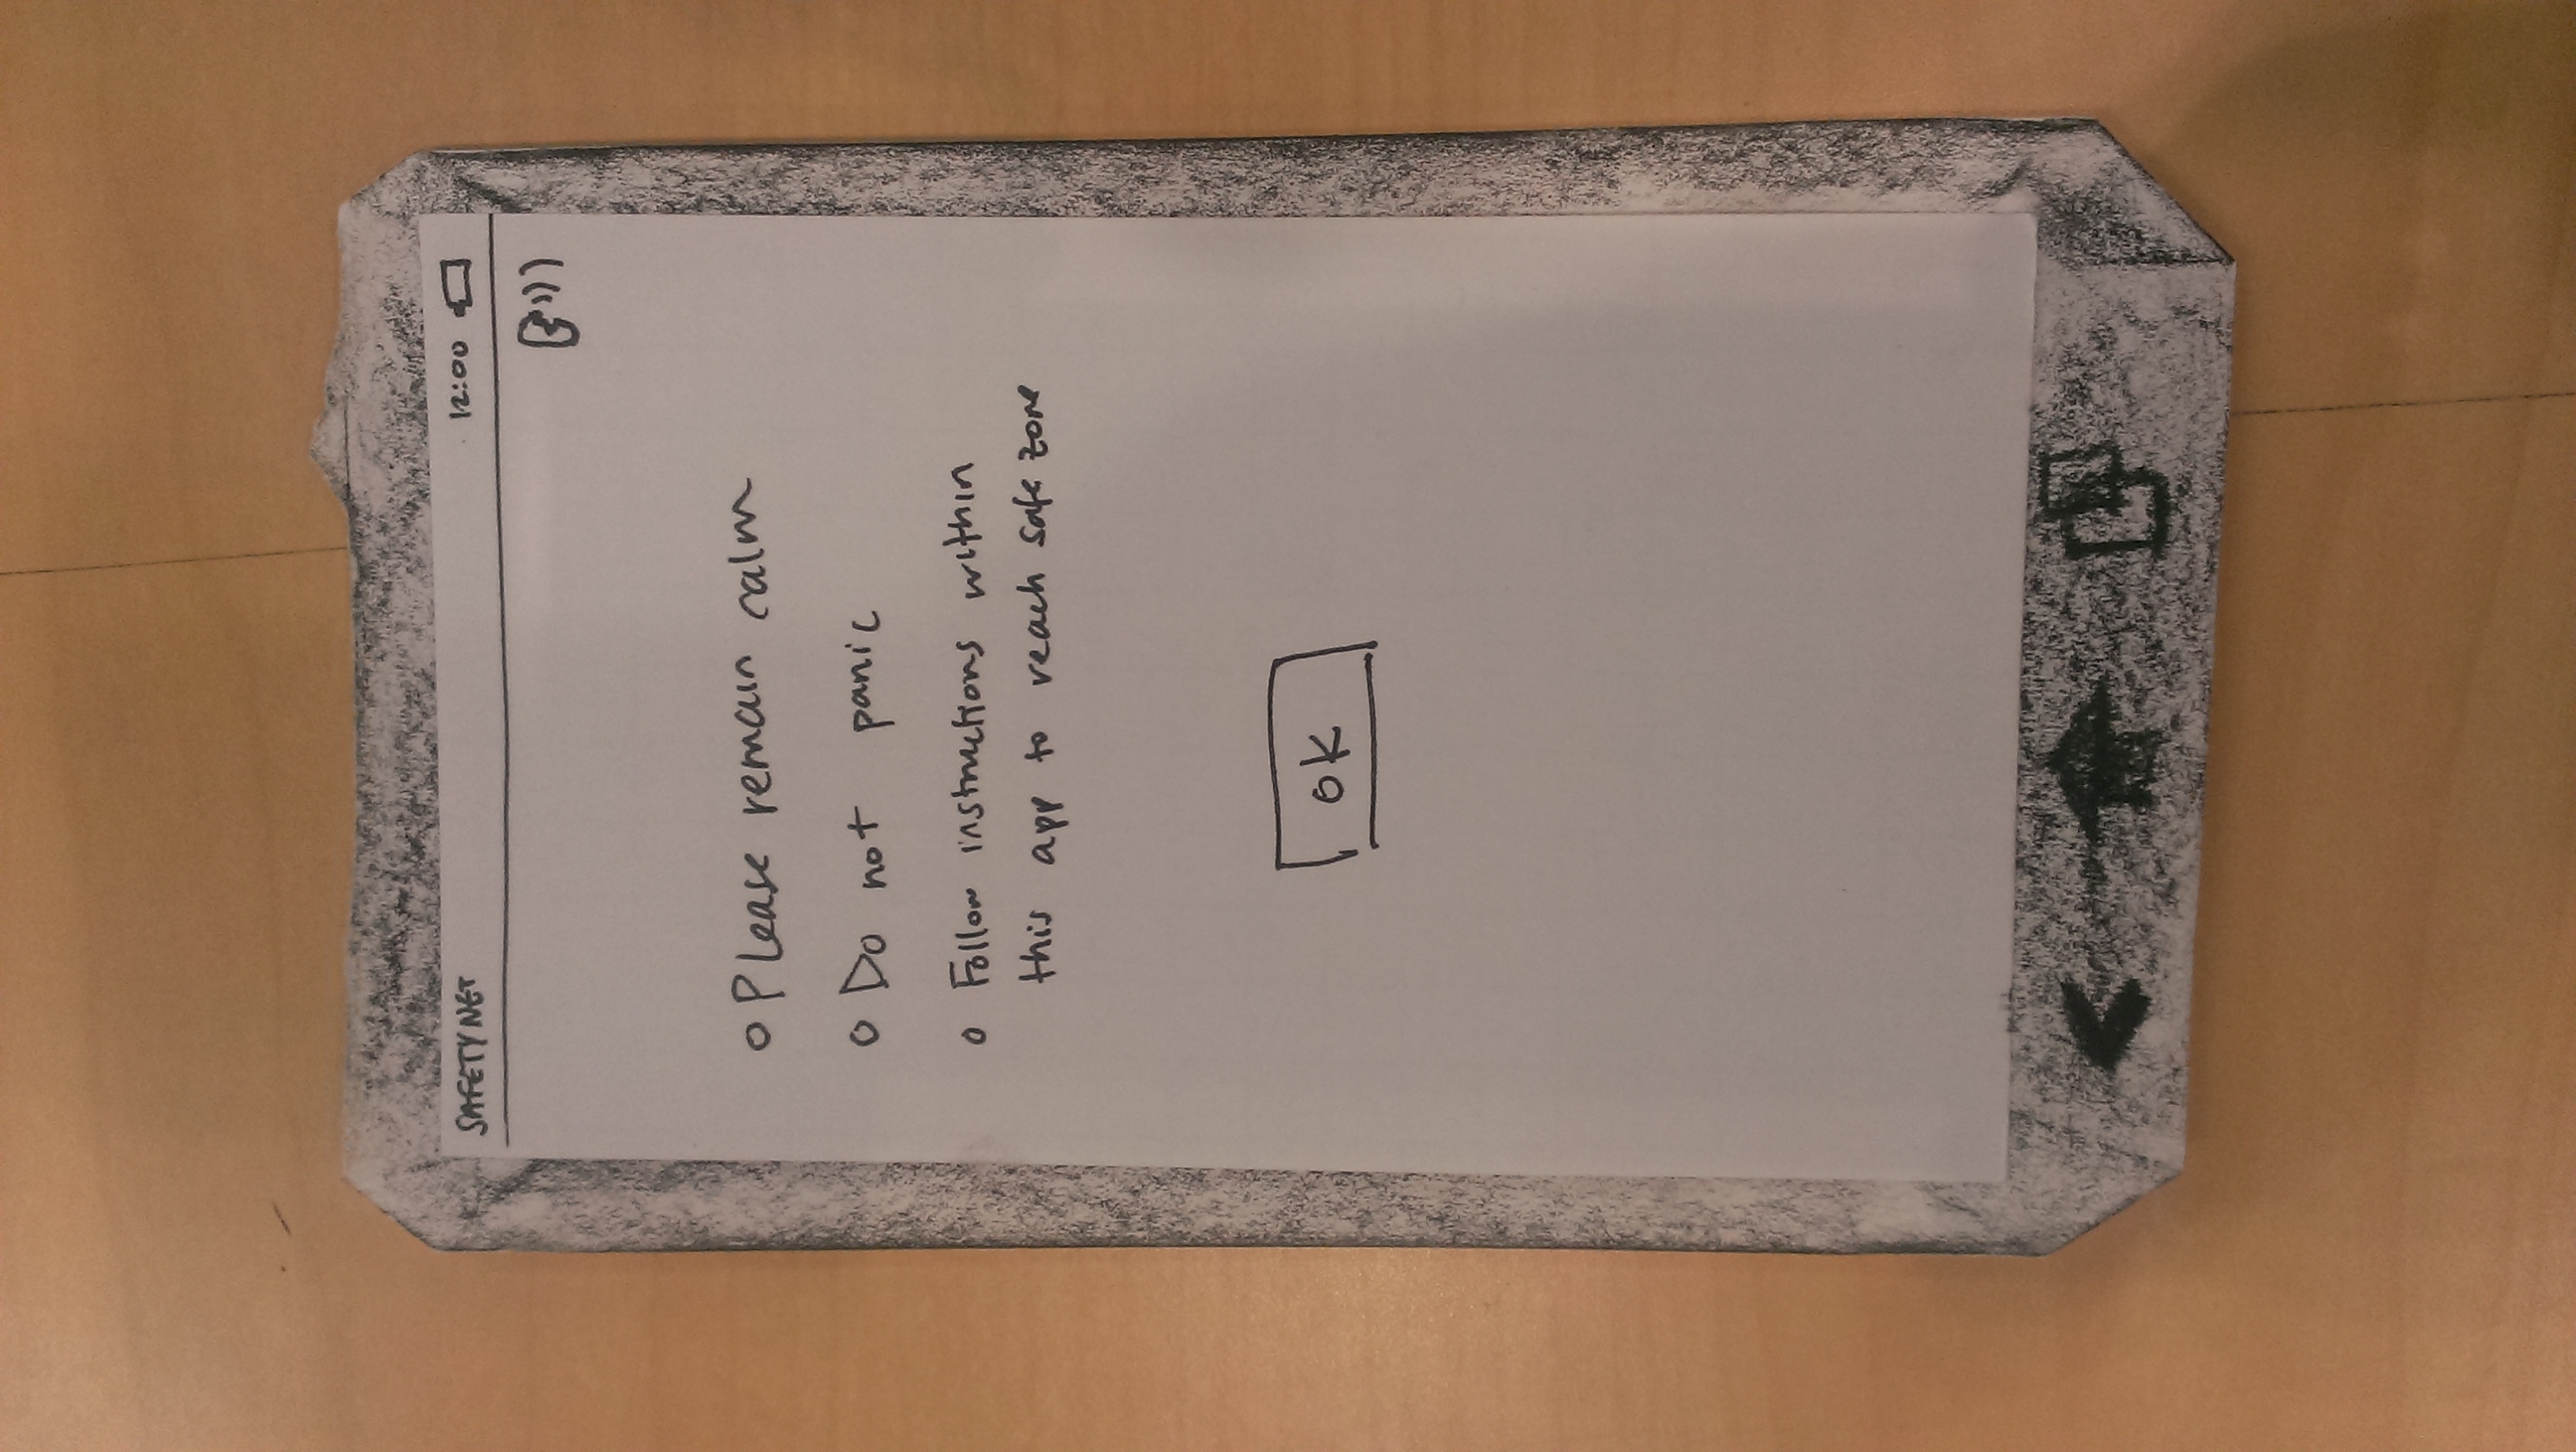 SAFETYNET 12:00
Please remain calm
Do not panic
Follow instructions within
this app to reach safe zone
OK